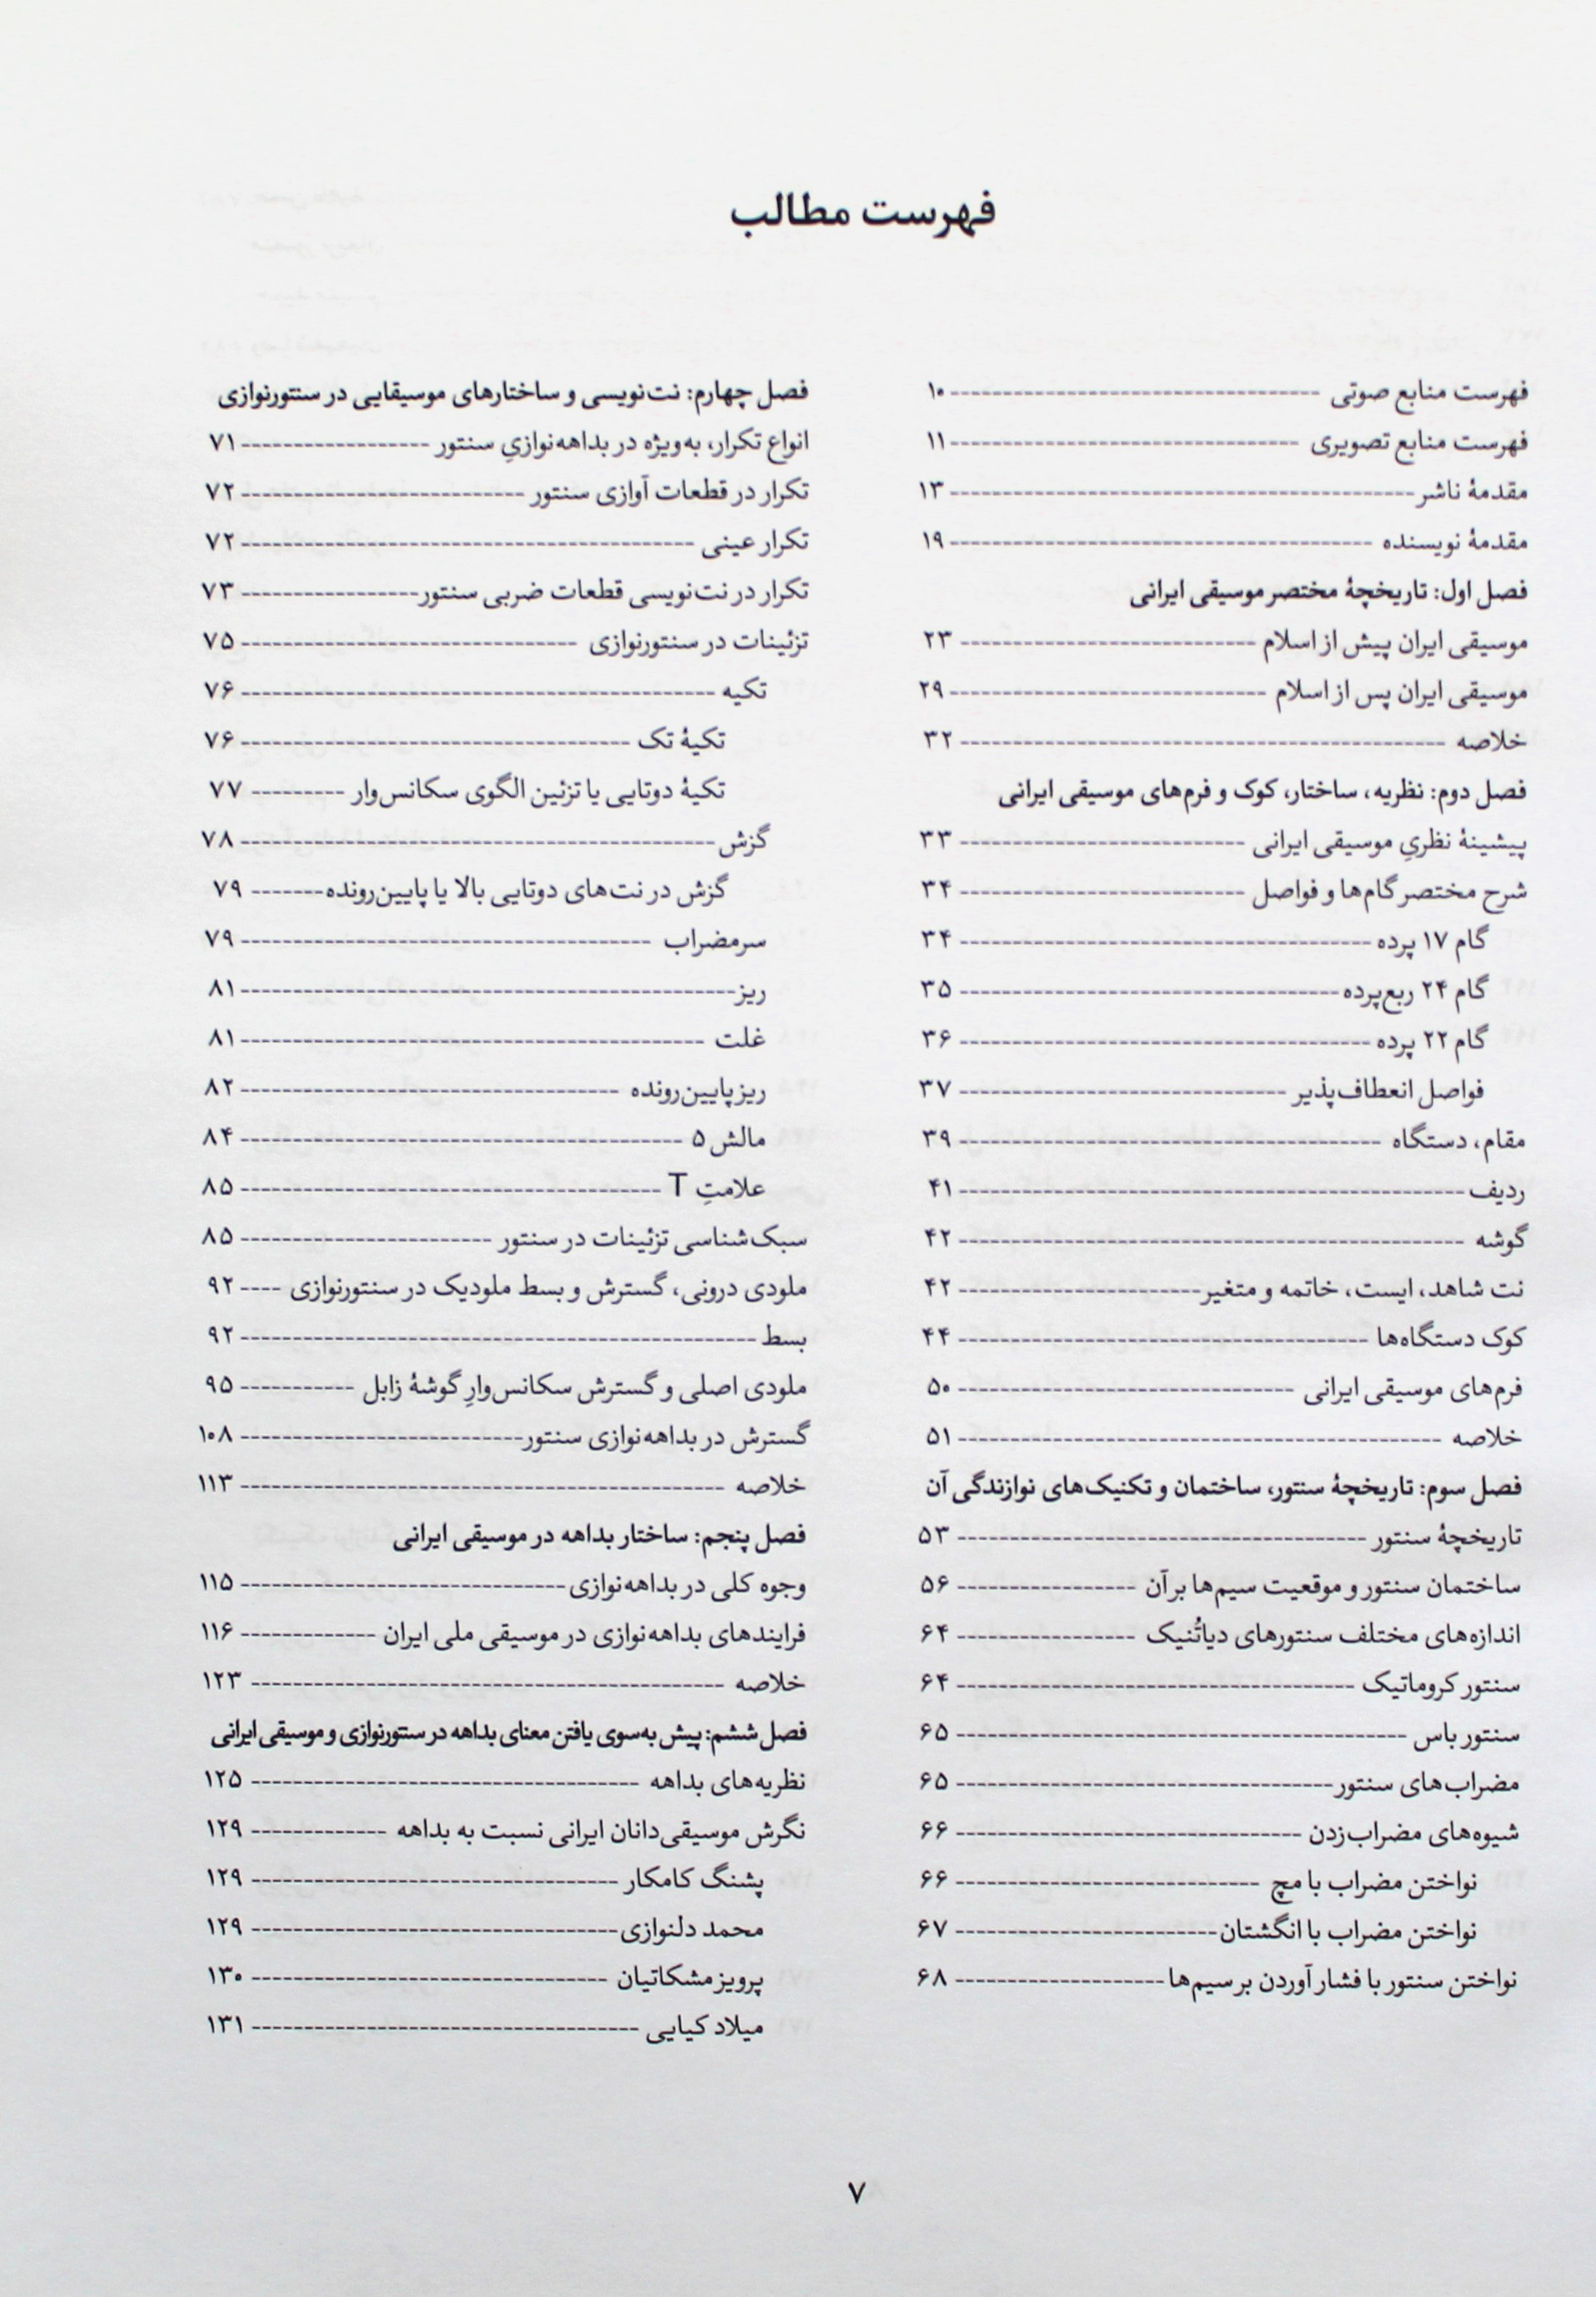 فهرست مطالب
فهرست منابع صوتی ---------- ۱۰
فهرست منابع تصویری ---------- ۱۱
مقدمهٔ ناشر ---------- ۱۳
مقدمهٔ نویسنده ---------- ۱۹
فصل اول: تاریخچهٔ مختصر موسیقی ایرانی
موسیقی ایران پیش از اسلام ---------- ۲۳
موسیقی ایران پس از اسلام ---------- ۲۹
خلاصه ---------- ۳۲
فصل دوم: نظریه، ساختار، کوک و فرم‌های موسیقی ایرانی
پیشینهٔ نظریِ موسیقی ایرانی ---------- ۳۳
شرح مختصر گام‌ها و فواصل ---------- ۳۴
گام ۱۷ پرده ---------- ۳۴
گام ۲۴ ربع‌پرده ---------- ۳۵
گام ۲۲ پرده ---------- ۳۶
فواصل انعطاف‌پذیر ---------- ۳۷
مقام، دستگاه ---------- ۳۹
ردیف ---------- ۴۱
گوشه ---------- ۴۲
نت شاهد، ایست، خاتمه و متغیر ---------- ۴۲
کوک دستگاه‌ها ---------- ۴۴
فرم‌های موسیقی ایرانی ---------- ۵۰
خلاصه ---------- ۵۱
فصل سوم: تاریخچهٔ سنتور، ساختمان و تکنیک‌های نوازندگی آن
تاریخچهٔ سنتور ---------- ۵۳
ساختمان سنتور و موقعیت سیم‌ها بر آن ---------- ۵۶
اندازه‌های مختلف سنتورهای دیاتُنیک ---------- ۶۴
سنتور کروماتیک ---------- ۶۴
سنتور باس ---------- ۶۵
مضراب‌های سنتور ---------- ۶۵
شیوه‌های مضراب‌زدن ---------- ۶۶
نواختن مضراب با مچ ---------- ۶۶
نواختن مضراب با انگشتان ---------- ۶۷
نواختن سنتور با فشار آوردن بر سیم‌ها ---------- ۶۸
فصل چهارم: نت‌نویسی و ساختارهای موسیقایی در سنتورنوازی
انواع تکرار، به‌ویژه در بداهه‌نوازیِ سنتور ---------- ۷۱
تکرار در قطعات آوازی سنتور ---------- ۷۲
تکرار عینی ---------- ۷۲
تکرار در نت‌نویسی قطعات ضربی سنتور ---------- ۷۳
تزئینات در سنتورنوازی ---------- ۷۵
تکیه ---------- ۷۶
تکیهٔ تک ---------- ۷۶
تکیهٔ دوتایی یا تزئین الگوی سکانس‌وار ---------- ۷۷
گزش ---------- ۷۸
گزش در نت‌های دوتایی بالا یا پایین‌رونده ---------- ۷۹
سرمضراب ---------- ۷۹
ریز ---------- ۸۱
غلت ---------- ۸۱
ریز پایین‌رونده ---------- ۸۲
مالش ۵ ---------- ۸۴
علامتِ T ---------- ۸۵
سبک‌شناسی تزئینات در سنتور ---------- ۸۵
ملودی درونی، گسترش و بسط ملودیک در سنتورنوازی ---- ۹۲
بسط ---------- ۹۲
ملودی اصلی و گسترش سکانس‌وارِ گوشهٔ زابل ---------- ۹۵
گسترش در بداهه‌نوازی سنتور ---------- ۱۰۸
خلاصه ---------- ۱۱۳
فصل پنجم: ساختار بداهه در موسیقی ایرانی
وجوه کلی در بداهه‌نوازی ---------- ۱۱۵
فرایندهای بداهه‌نوازی در موسیقی ملی ایران ---------- ۱۱۶
خلاصه ---------- ۱۲۳
فصل ششم: پیش به‌سوی یافتن معنای بداهه در سنتورنوازی و موسیقی ایرانی
نظریه‌های بداهه ---------- ۱۲۵
نگرش موسیقی‌دانان ایرانی نسبت به بداهه ---------- ۱۲۹
پشنگ کامکار ---------- ۱۲۹
محمد دلنوازی ---------- ۱۲۹
پرویز مشکاتیان ---------- ۱۳۰
میلاد کیایی ---------- ۱۳۱
۷